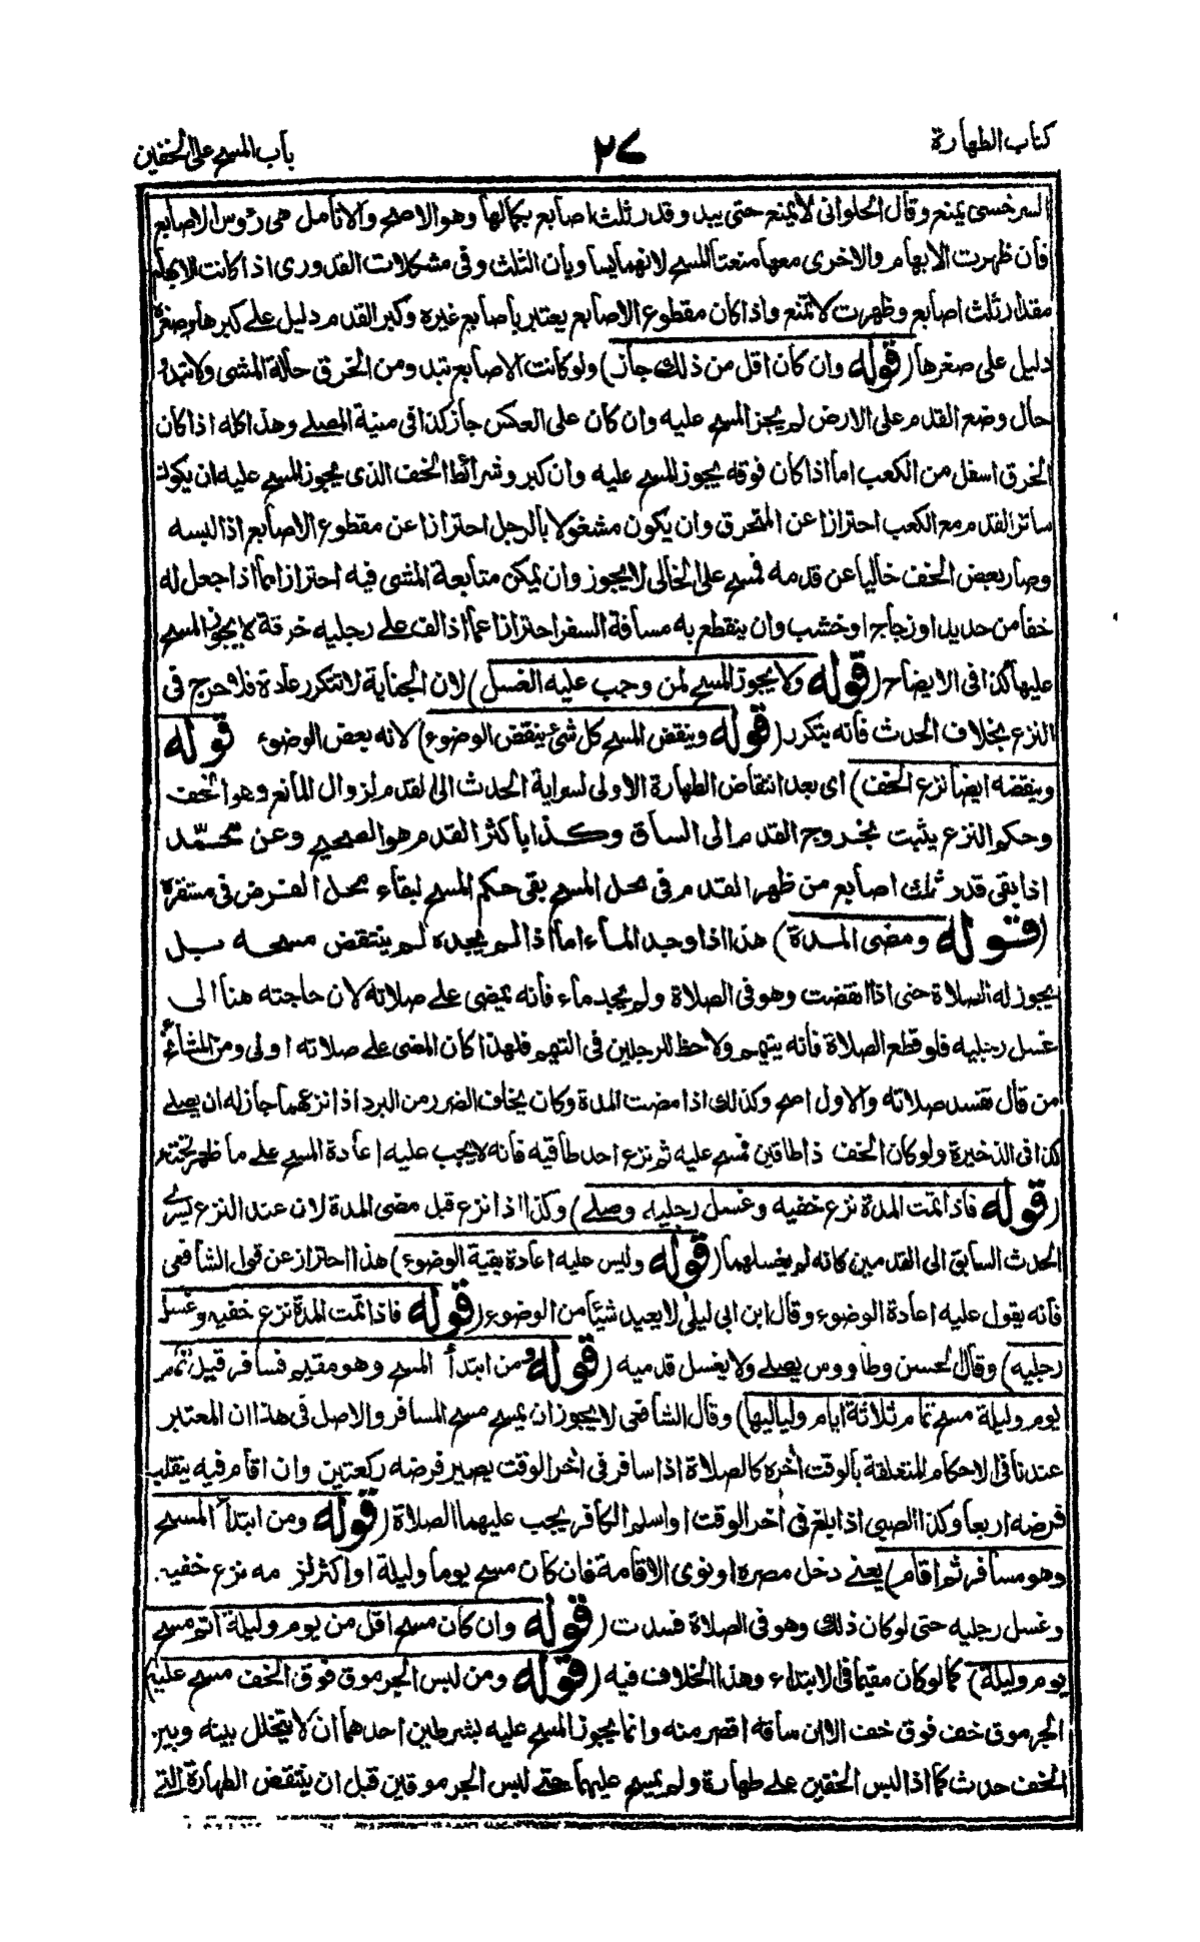 كتاب الطهارة
٢٧
باب المسح على الخفين
السرخسى يمنع وقال الحلوانى لا يمنع حتى يبد وقدر ثلث اصابع بكمالها وهو الاصح والانامل هى رؤس الاصابع
فان ظهرت الابهام والاخرى معها منعتا المسح لانهما يساويان الثلث وفى مشكلات القدورى اذا كانت الابهام
مقدار ثلث اصابع وظهرت لا تمنع واذا كان مقطوع الاصابع يعتبر بأصابع غيره وكبر القدم دليل على كبرها وصغره
دليل على صغرها (قوله وان كان اقل من ذلك جاز) ولو كانت الاصابع تبد ومن الخرق حالة المشى ولا تبد و
حال وضع القدم على الارض لم يجز المسح عليه وان كان على العكس جاز كذا فى منية المصلى وهذا كله اذا كان
الخرق اسفل من الكعب اما اذا كان فوقه يجوز المسح عليه وان كبر وشرائط الخف الذى يجوز المسح عليه ان يكون
ساتر القدم مع الكعب احترازا عن المتخرق وان يكون مشغولا بالرجل احترازا عن مقطوع الاصابع اذا لبسه
وصار بعض الخف خاليا عن قدمه فمسح على الخالى لا يجوز وان يمكن متابعة المشى فيه احترازا مما اذا جعل له
خفا من حديد او زجاج او خشب وان ينقطع به مسافة السفر احترازا عما اذا لف على رجليه خرقة لا يجوز المسح
عليها كذا فى الايضاح (قوله ولا يجوز المسح لمن وجب عليه الغسل) لان الجنابة لا تتكرر عادة فلا حرج فى
النزع بخلاف الحدث فانه يتكرر (قوله وينقض المسح كل شئ ينقض الوضوء) لانه بعض الوضوء قوله
وينقضه ايضا نزع الخف) اى بعد انتقاض الطهارة الاولى لسراية الحدث الى القدم لزوال المانع وهو الخف
وحكم النزع يثبت بخروج القدم الى الساق وكذا بأكثر القدم هو الصحيح وعن محمّد
اذا بقى قدر ثلث اصابع من ظهر القدم فى محل المسح بقى حكم المسح لبقاء محل الفرض فى مستقره
(قوله ومضى المدة) هذا اذا وجد الماء اما اذا لم يجده لم ينتقض مسحه بل
يجوز له الصلاة حتى اذا انقضت وهو فى الصلاة ولم يجد ماء فانه يمضى على صلاته لان حاجته هنا الى
غسل رجليه فلو قطع الصلاة فانه يتيمم ولا حظ للرجلين فى التيمم فلهذا كان المضى على صلاته اولى ومن المشائخ
من قال تفسد صلاته والاول اصح وكذلك اذا مضت المدة وكان يخاف الضرر من البرد اذا نزعهما جاز له ان يصلى
كذا فى الذخيرة ولو كان الخف ذا طاقين فمسح عليه ثم نزع احد طاقيه فانه لا يجب عليه اعادة المسح على ما ظهر تحته
(قوله فاذا تمت المدة نزع خفيه وغسل رجليه وصلى) وكذا اذا نزع قبل مضى المدة لان عند النزع يسرى
الحدث السابق الى القدمين كانه لم يغسلهما (قوله وليس عليه اعادة بقية الوضوء) هذا احتراز عن قول الشافعى
فانه يقول عليه اعادة الوضوء وقال ابن ابى ليلى لا يعيد شيئا من الوضوء (قوله فاذا تمت المدة نزع خفيه وغسل
رجليه) وقال الحسن وطاووس يصلى ولا يغسل قدميه (قوله ومن ابتدأ المسح وهو مقيم فسافر قبل تمام
يوم وليلة مسح تمام ثلاثة ايام ولياليها) وقال الشافعى لا يجوز ان يمسح مسح المسافر والاصل فى هذا ان المعتبر
عندنا فى الاحكام المتعلقة بالوقت اٰخره كالصلاة اذا سافر فى اٰخر الوقت يصير فرضه ركعتين وان اقام فيه ينقلب
فرضه اربعا وكذا الصبى اذا بلغ فى اٰخر الوقت او اسلم الكافر يجب عليهما الصلاة (قوله ومن ابتدأ المسح
وهو مسافر ثم اقام) يعنى دخل مصره او نوى الاقامة فان كان مسح يوما وليلة او اكثر لزمه نزع خفيه
وغسل رجليه حتى لو كان ذلك وهو فى الصلاة فسدت (قوله وان كان مسح اقل من يوم وليلة اتم مسح
يوم وليلة) كما لو كان مقيما فى الابتداء وهذا الخلاف فيه (قوله ومن لبس الجرموق فوق الخف مسح عليه)
الجرموق خف فوق خف الا ان ساقه اقصر منه وانما يجوز المسح عليه بشرطين احدهما ان لا يتخلل بينه وبين
الخف حدث كما اذا لبس الخفين على طهارة ولم يمسح عليهما حتى لبس الجرموقين قبل ان ينتقض الطهارة التى